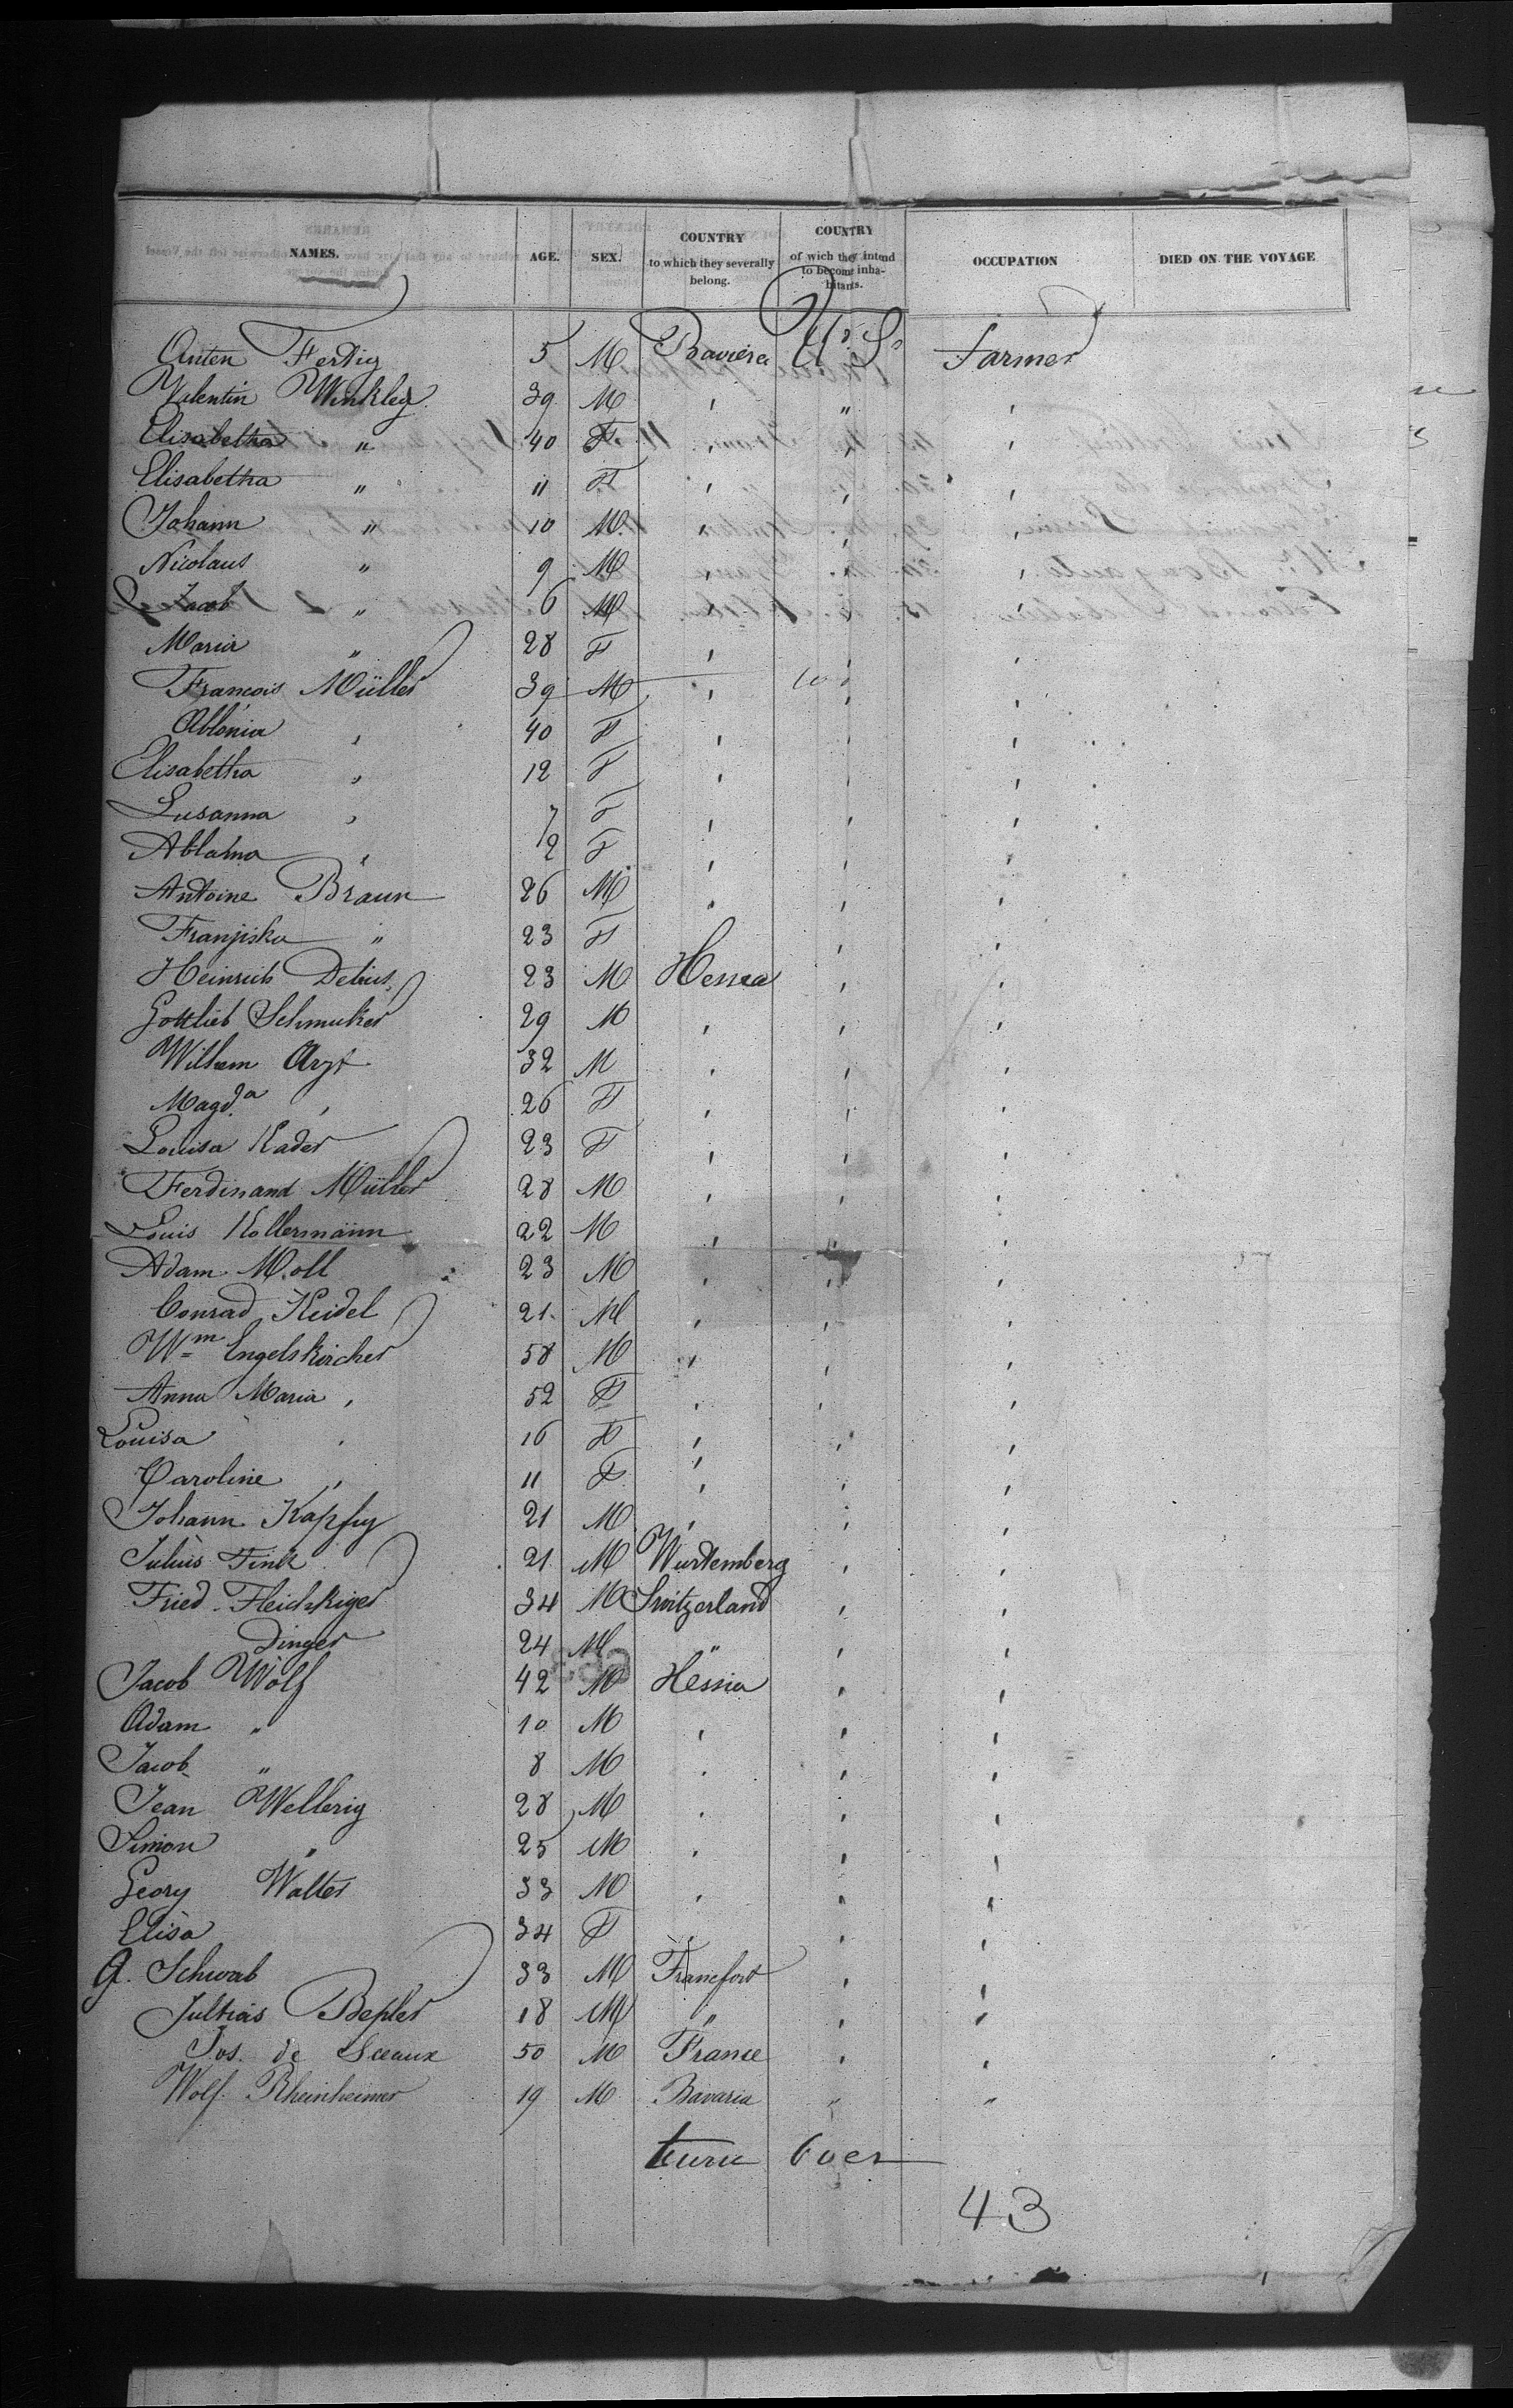 NAMES. AGE. SEX. COUNTRY to which they severally belong. COUNTRY of wich they intend to become inhabitants. OCCUPATION DIED ON THE VOYAGE
Anten Ferdig 5 M Baviera U. S. farmer
Valentin Winkley 39 M , " ,
Elisabetha " 40 F , , ,
Elisabetha " 11 F , , ,
Johann " 10 M , , ,
Nicolaus " 9 M , , ,
Jacob " 6 M , , ,
Maria " 28 F , , ,
Francois Müller 39 M , , ,
Ablonia , 40 F , , ,
Elisabetha , 12 F , , ,
Susanna , 7 F , , ,
, 2 F , , ,
Antoine Braun 26 M , , ,
Franziska " 23 F , ,
Heinrich 23 M Hessea , ,
Gottlieb Schmuker 29 M , , ,
Wilhem Arzt 32 M , , ,
Magda , 26 F , , ,
Louisa Kader 23 F , , ,
Ferdinand Müller 28 M , , ,
Louis Kollermann 22 M , , ,
Adam Moll 23 M , , ,
Conrad Heidel 21 M , , ,
Wm Engelskircher 58 M , , ,
Anna Maria , 52 F , , ,
Louisa , 16 F , , ,
Caroline , 11 F , , ,
Johann 21 M , , ,
Julius Fink 21 M Wurtemberg , ,
Fried. 34 M Switzerland , ,
Dinger 24 M " , ,
Jacob Wolf 42 M Hessia , ,
Adam " 10 M , , ,
Jacob " 8 M , , ,
Jean Wellerig 28 M , , ,
Simon " 25 M , , ,
Georg Walter 33 M , , ,
Elisa 34 F , , ,
G. Schwab 33 M Francfort , ,
Bepler 18 M " , ,
Jos. de Sceaux 50 M France , ,
Wolf Rheinheimer 19 M Bavaria " "
turn over
43